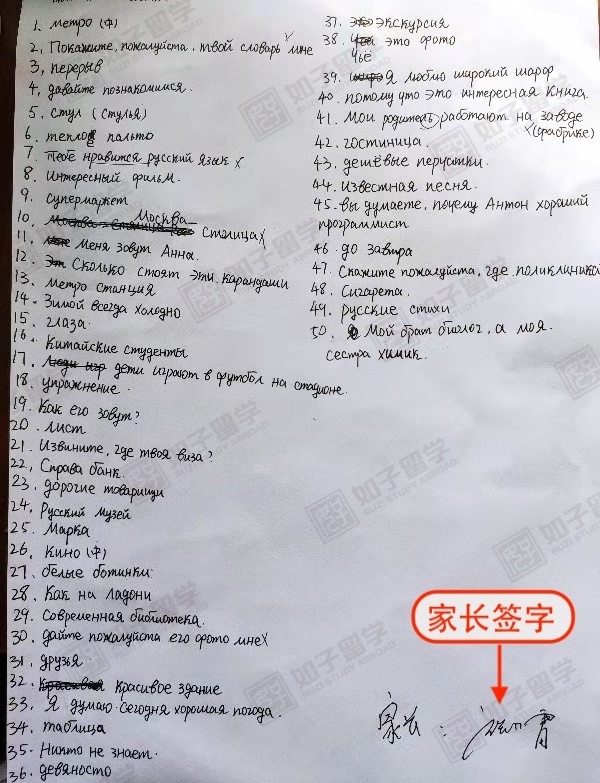 1. метро (中)
2, Покажите, пожалуйста. твой словарь мне
3, перерыв
4, давайте познакомимся.
5. стул (стулья)
6. теплое пальто
7. Тебе нравится русский язык
8. Интересный фильм.
9. супермаркет
10. Москва столица
11. Меня зовут Анна.
12. Сколько стоят эти карандаши
13. метро станция
14. Зимой всегда холодно
15. глаза.
16. Китайские студенты
17. дети играют в футбол на стадионе.
18. упражнение.
19. Как его зовут?
20. лист
21. Извините, где твоя виза?
22, Справа банк.
23. дорогие товарищи
24. Русский музей
25. Марка.
26. Кино (中)
27. белые ботинки
28. Как на ладони
29. Современная библиотека.
30. дайте пожалуйста его фото мне
31. друзья.
32. красивое здание
33. Я думаю. Сегодня хорошая погода.
34. таблица
35. Никто не знает.
36. девяносто
37. экскурсия
38. Чьё это фото
39. я люблю широкий шарф
40. потому что это интересная книга.
41. Мои родители работают на заводе
(фабрике)
42. гостиница.
43. дешёвые перушки.
44. известная песня.
45. вы думаете, почему Антон хороший
программист
46. до завтра
47. Скажите пожалуйста, где поликлиника
48. Сигарета.
49. русские стихи
50. Мой брат биолог, а моя
сестра химик.
家长签字
家长:
如子留学
RUZI STUDY ABROAD